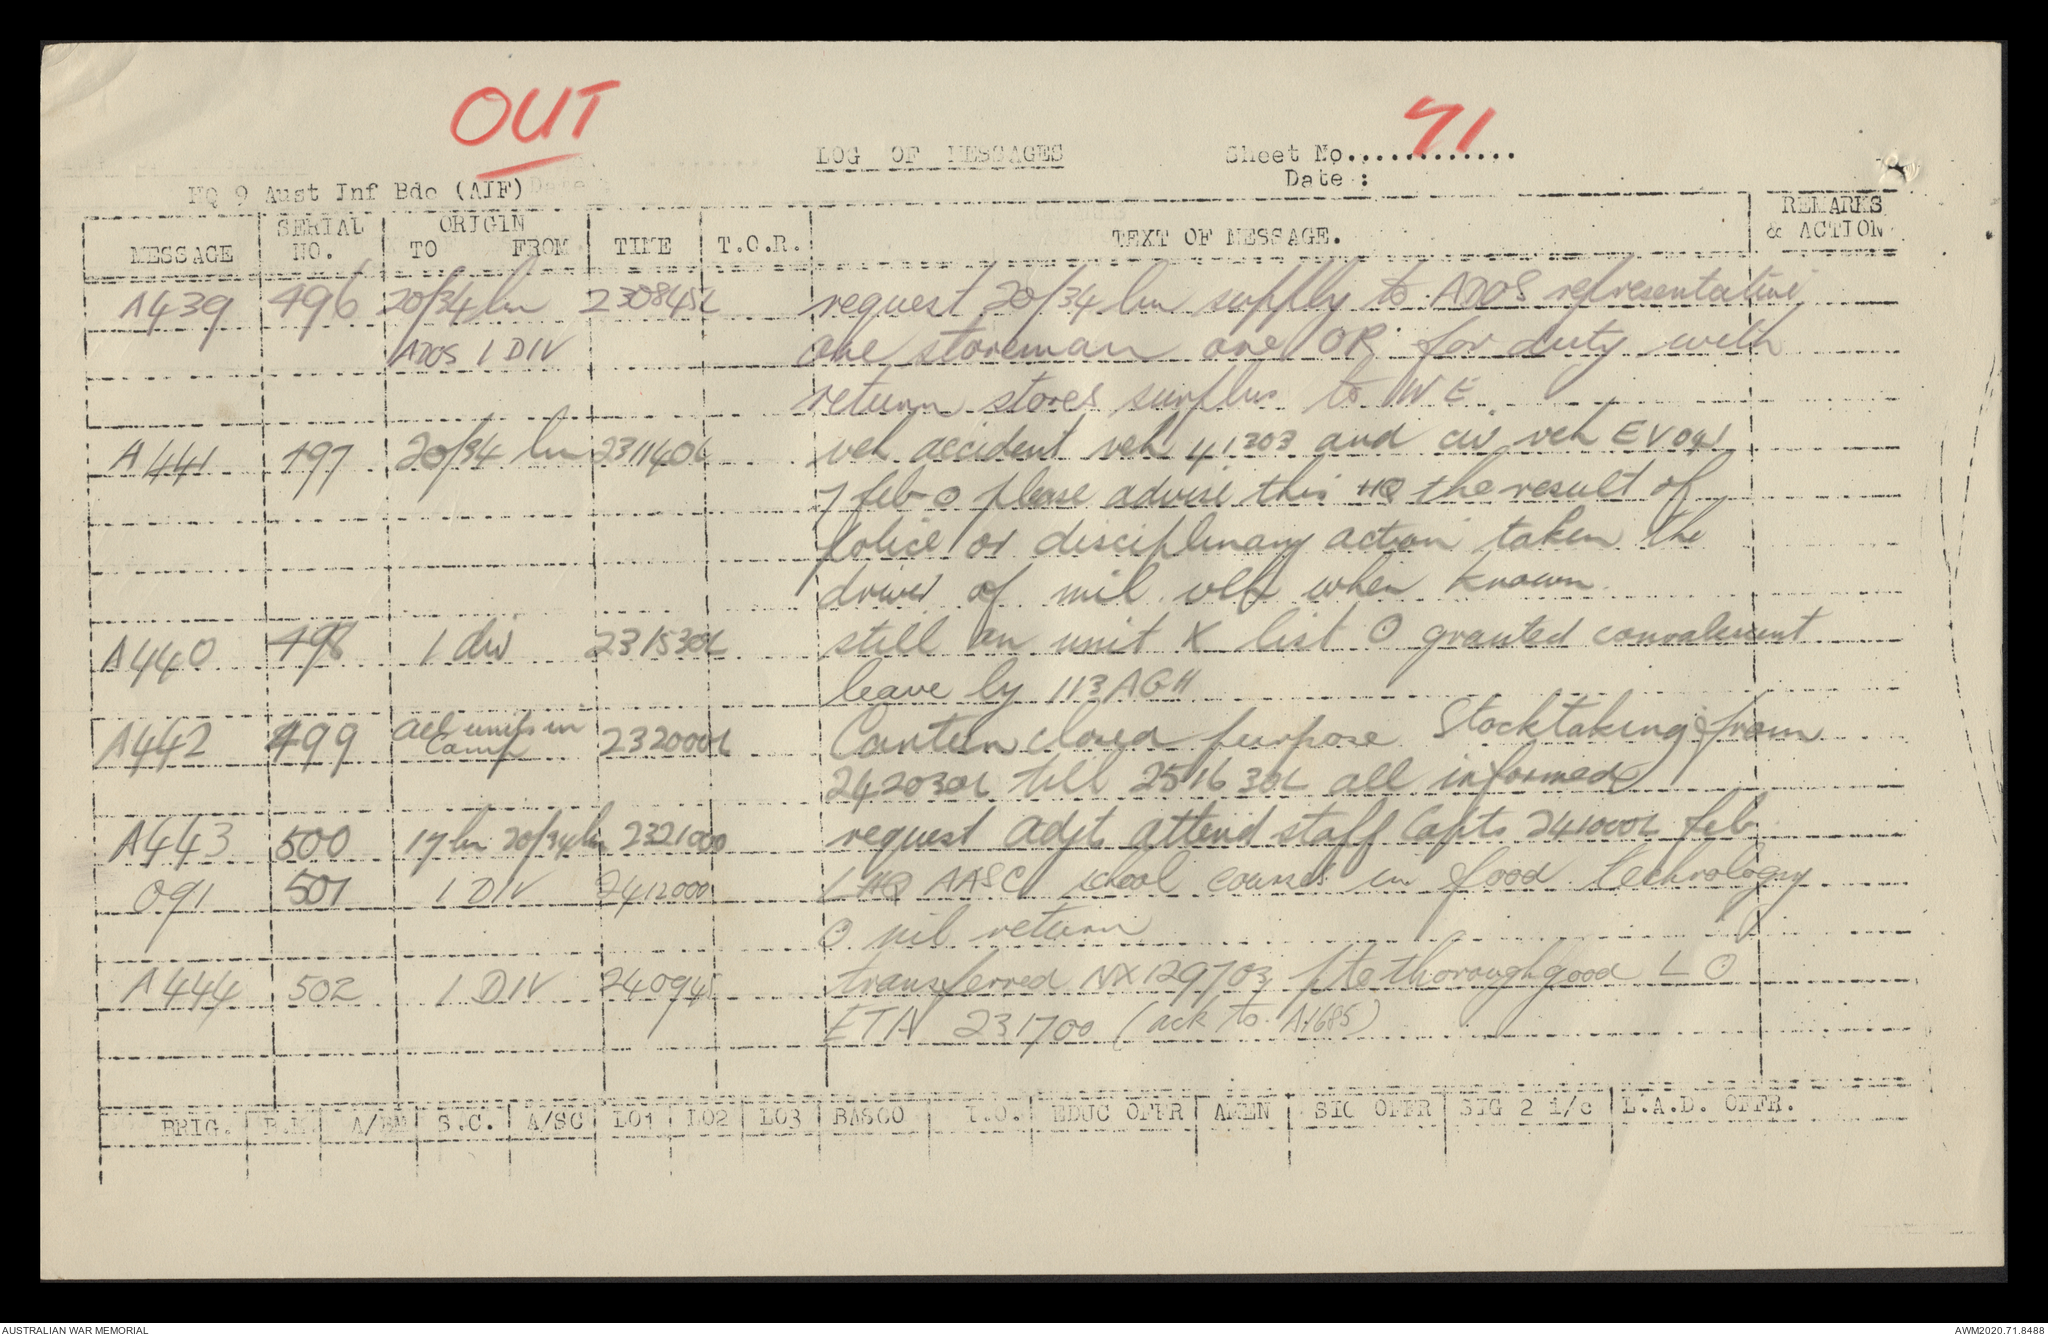 OUT
LOG OF MESSAGES Sheet No. 71
Date :
HQ 9 Aust Inf Bde (AIF)
MESSAGE SERIAL NO. ORIGIN TO FROM TIME T.O.R. TEXT OF MESSAGE. REMARKS & ACTION
A439 496 20/34 bn 230845L request 20/34 bn supply to ADOS representative
ADOS 1 DIV one storeman one OR for duty with
return stores surplus to WE
A441 497 20/34 bn 231140L veh accident veh 41303 and civ veh EV041
7 feb O please advise this HQ the result of
police or disciplinary action taken the
driver of mil veh when known
A440 498 1 div 231530L still on unit X list O granted convalescent
leave by 113 AGH
A442 499 all units in camp 232000L Canteen closed purpose Stocktaking from
242030L till 251630L all informed
A443 500 17 bn 20/34 bn 232100 request adjt attend staff Capts 241000L feb
091 501 1 DIV 241200 LHQ AASC school courses in food technology
O nil return
A444 502 1 DIV 240945 transferred NX129703 pte thoroughgood L O
ETA 231700 (ack to A1685)
BRIG. B.M. A/BM S.C. A/SC LO1 LO2 LO3 BASCO I.O. EDUC OFFR AMEN SIG OFFR SIG 2 i/c L.A.D. OFFR.
AUSTRALIAN WAR MEMORIAL AWM2020.71.8488